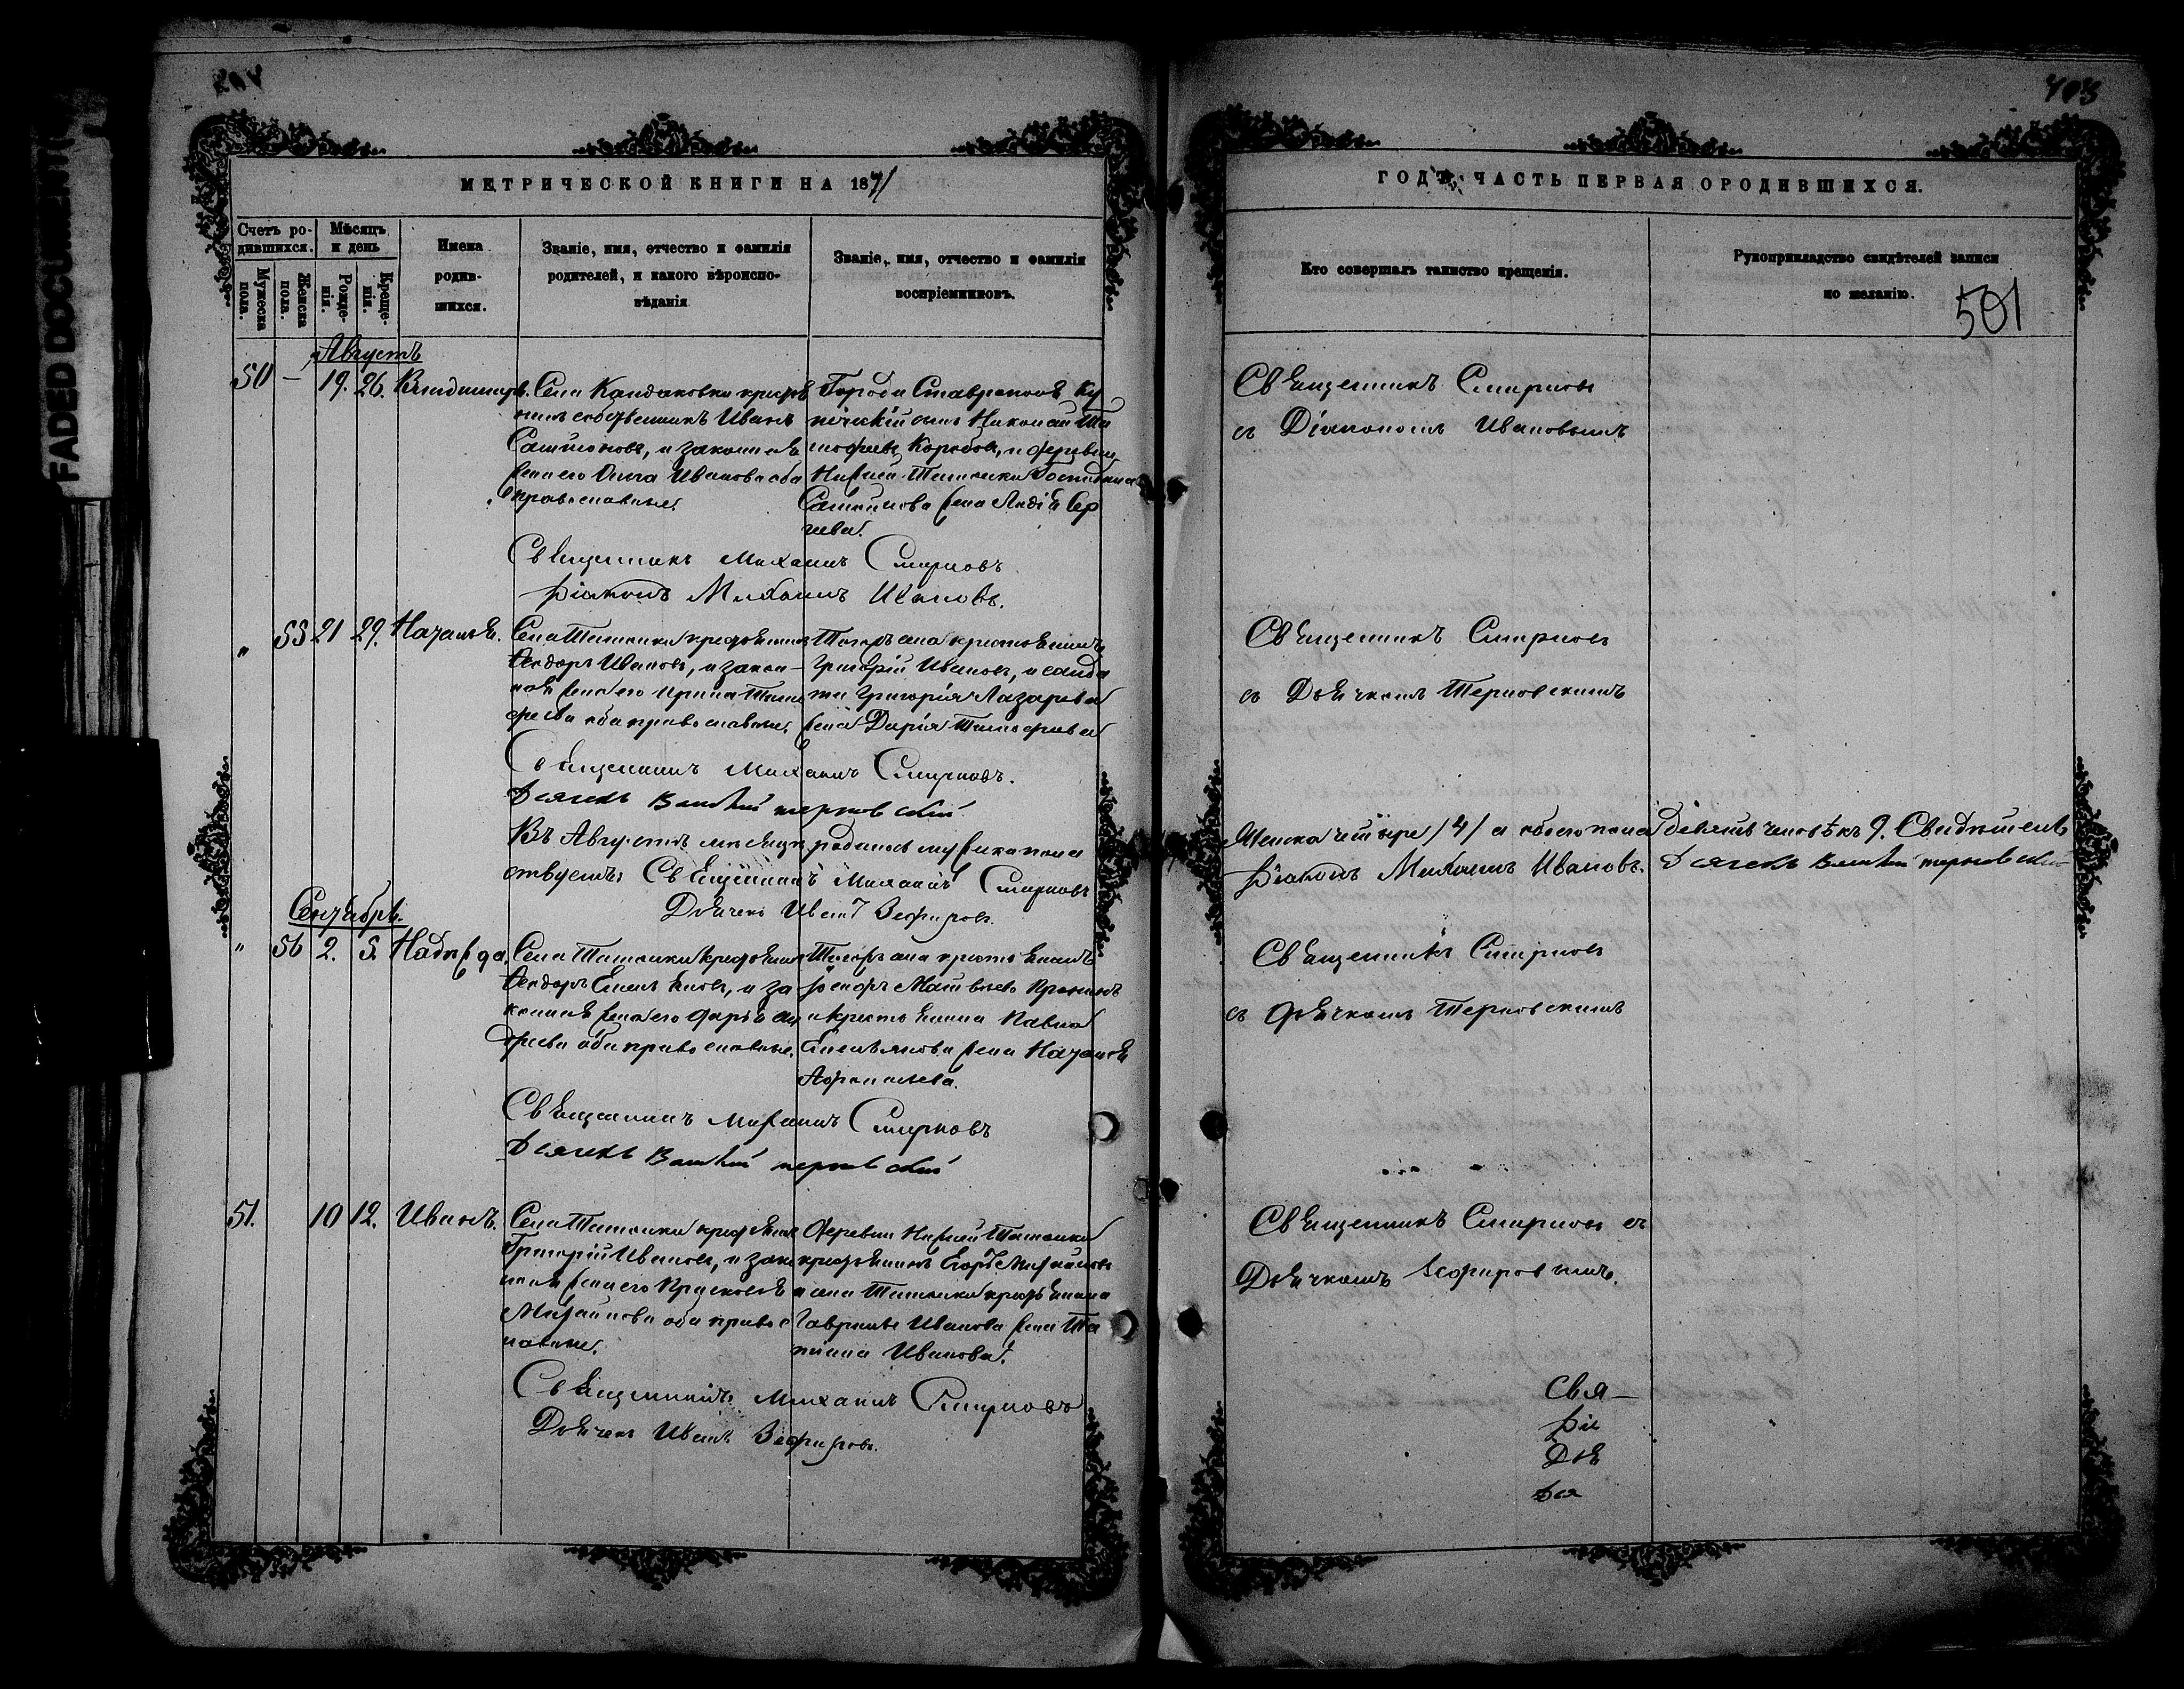 FADED DOCUMENT
403
501
МЕТРИЧЕСКОЙ КНИГИ НА 1871
Счетъ ро-
дившихся.
Мужеска
пола.
Женска
пола.
Мѣсяцъ
и день
Рожде-
нія.
Креще-
нія.
Имена
родив-
шихся.
Званіе, имя, отчество и фамилія
родителей, и какого вѣроиспо-
вѣданія
Званіе, имя, отчество и фамилія
воспріемниковъ.
ГОДЪ ЧАСТЬ ПЕРВАЯ О РОДИВШИХСЯ.
Кто совершалъ таинство крещенія.
Рукоприкладство свидѣтелей записи
по желанію.
Августъ
50 — 19. 26. Владиміръ.
Села Кандаковки
собственникъ Иванъ
и законная
жена его Анна Иванова оба
православные.
Города Ставрополя Ку
печескій сынъ Николай Ти
мофеевъ и деревни
Нижней
жена Лидія Сер
гѣева.
Священникъ Михаилъ Смирновъ
Діаконъ Михаилъ Ивановъ.
Священникъ Смирновъ
съ Діакономъ Ивановымъ
" 55 21 29. Наталія.
Села крестьянинъ
Ѳедоръ Ивановъ, и закон-
ная жена его Ирина Тимо
феева оба православные.
Того же села крестьянинъ
Григорій Ивановъ, и
Григорія Лазарева
жена Дарія Тимофеева
Священникъ Михаилъ Смирновъ.
Дьячекъ Василій Терновскій
Священникъ Смирновъ
съ Дьячкомъ Терновскимъ
Въ Августѣ мѣсяцѣ родилось мужеска пола
Женска четыре /4/ а обоего пола девять человѣкъ 9. Свидѣтель
ствуемъ: Священникъ Михаилъ Смирновъ
Діаконъ Михаилъ Ивановъ. Дьячекъ Василій Терновскій
Дьячекъ Иванъ Зефировъ.
Сентябрь.
" 56 2. 5. Надежда.
Села крестьянинъ
Ѳедоръ Емельяновъ, и за
конная жена его Дарія Ан
дреева оба православные.
Того же села крестьянинъ
Матвѣевъ
и крестьянина Павла
Емельянова жена Наталія
Афанасьева.
Священникъ Михаилъ Смирновъ
Дьячекъ Василій Терновскій
Священникъ Смирновъ
съ Дьячкомъ Терновскимъ
51. 10 12. Иванъ.
Села крестьянинъ
Григорій Ивановъ, и зако
ная жена его Прасковья
Михайлова оба правос
лавные.
Деревни Нижней
крестьянинъ Егоръ Михайловъ
и села крестьянина
Гавриила Иванова жена Та
тіана Иванова.
Священникъ Михаилъ Смирновъ
Дьячекъ Иванъ Зефировъ.
Священникъ Смирновъ съ
Дьячкомъ Зефировымъ.
Свя—
Діа
Дья
Дья